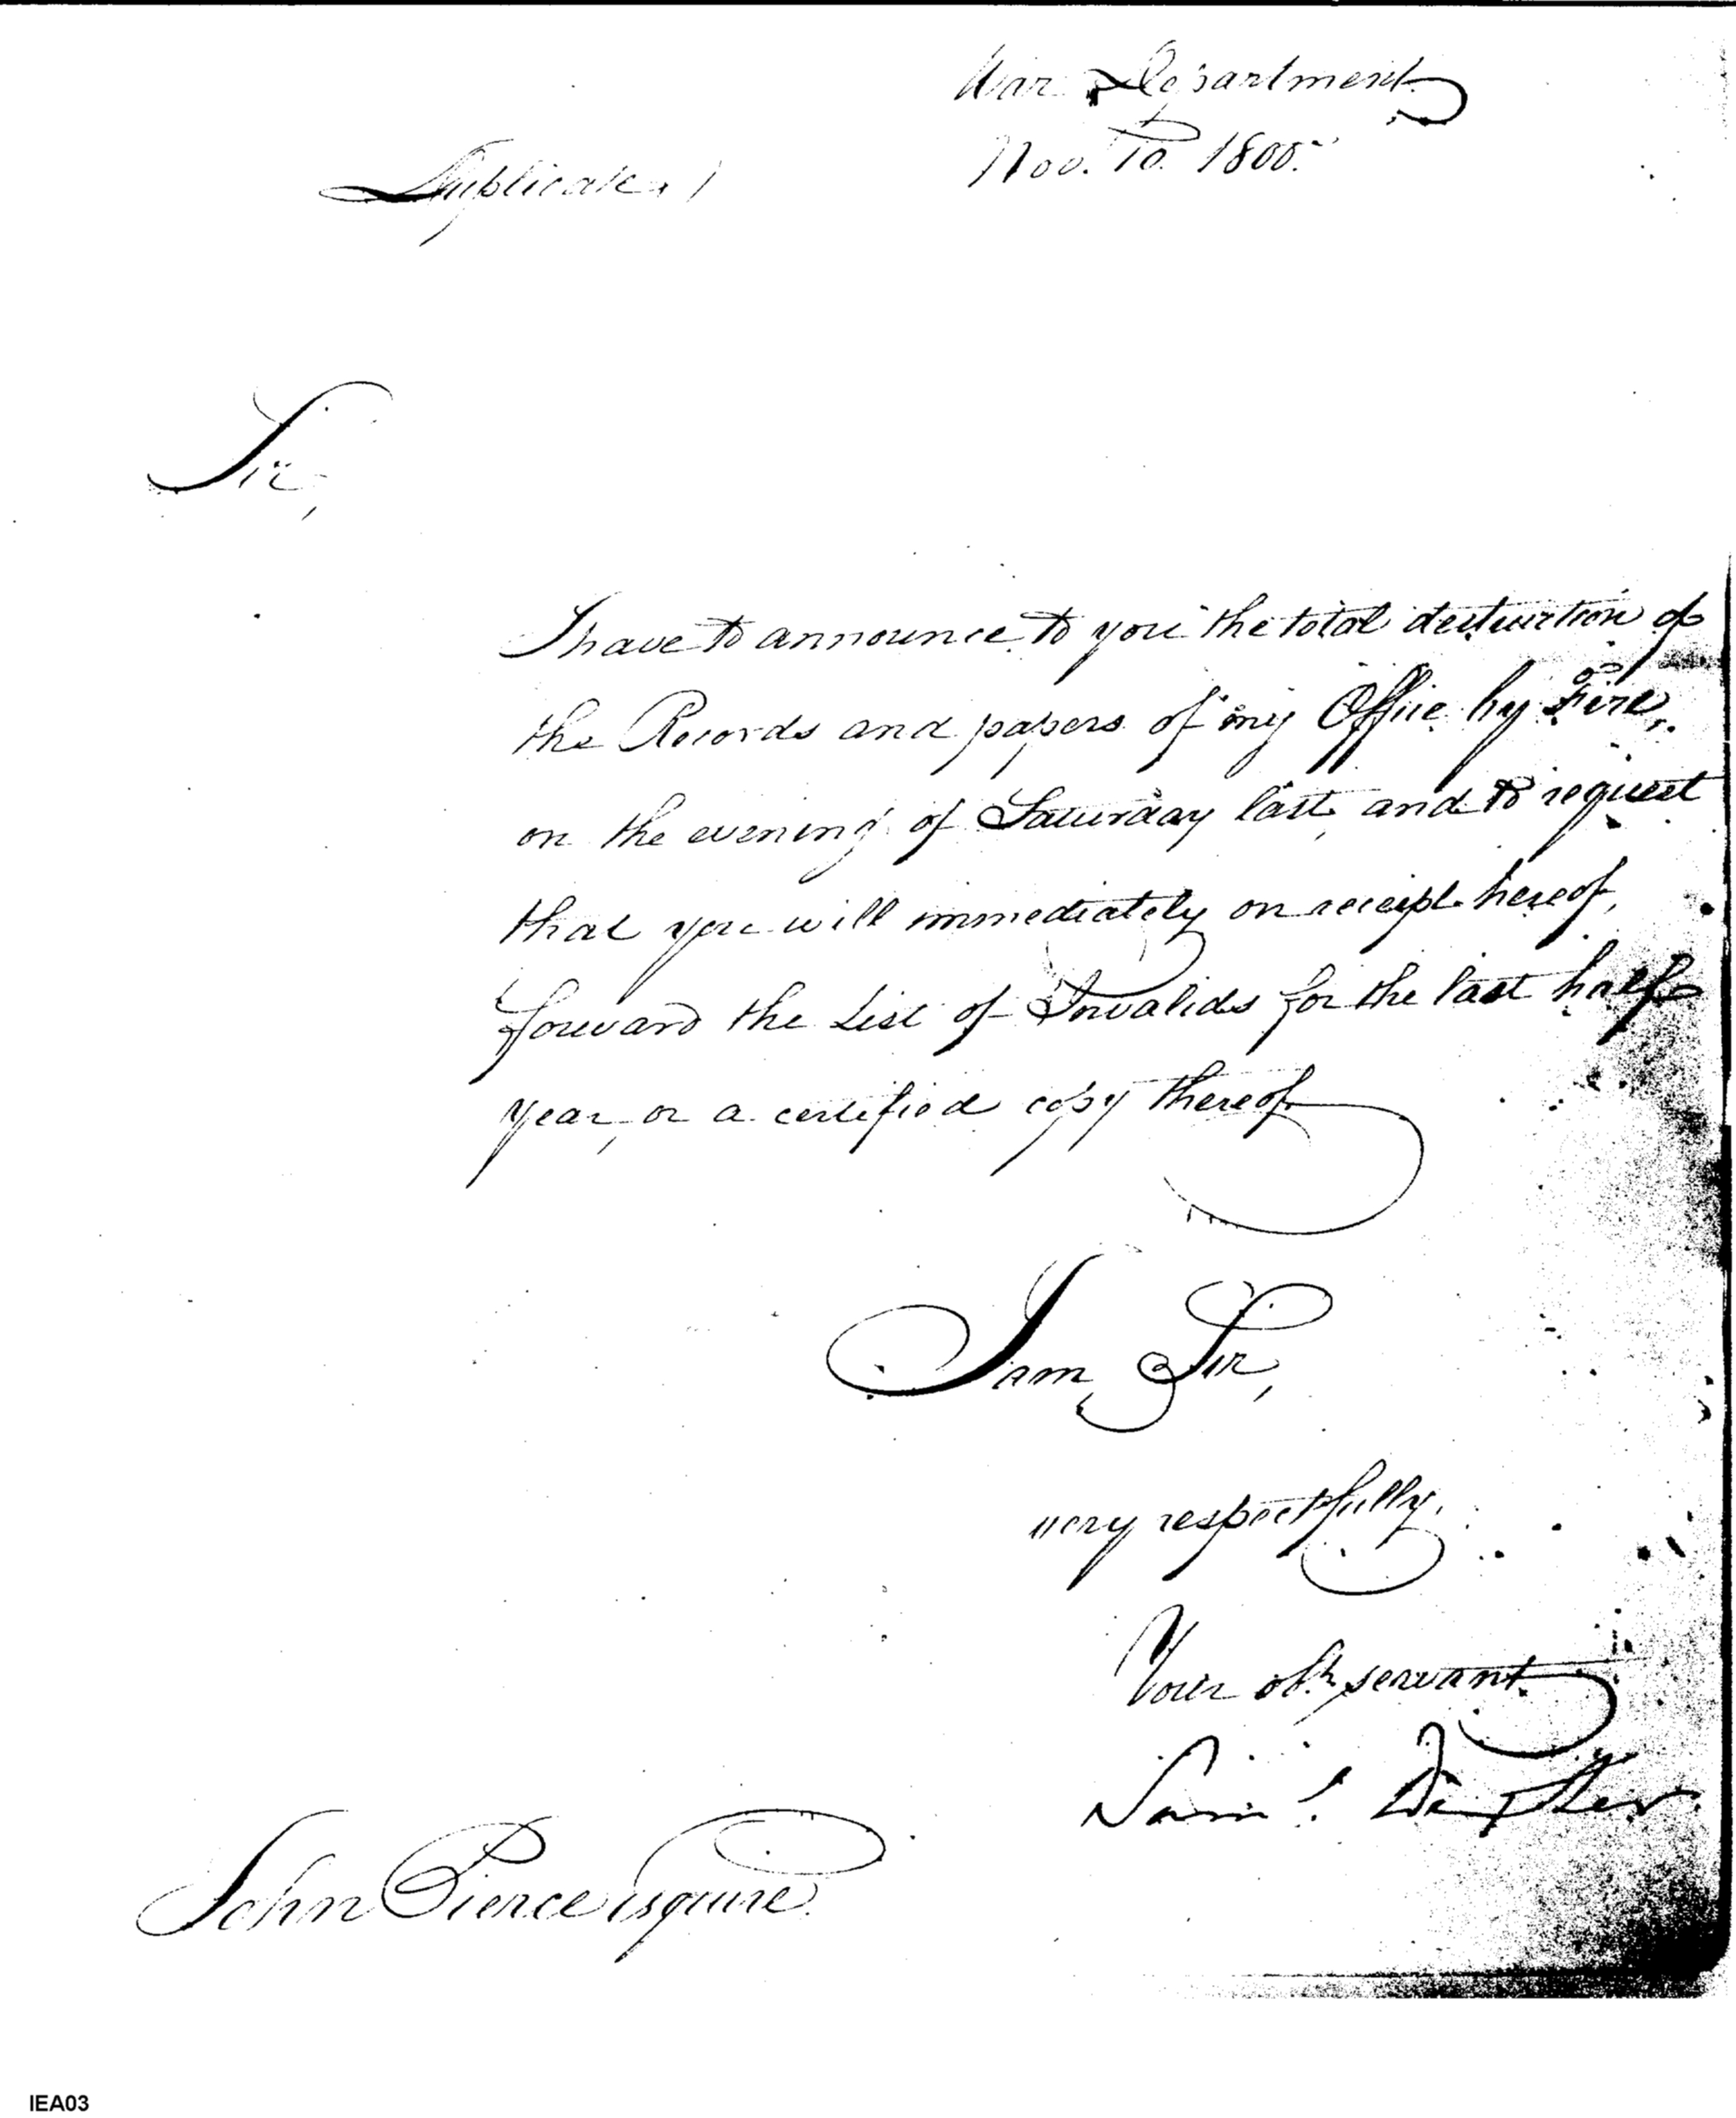 War Department
Nov. 10. 1800.
Duplicate)
Sir,
I have to announce to you the total destruction of
the Records and papers of my Office by Fire,
on the evening of Saturday last, and to request
that you will immediately on receipt hereof,
forward the List of Invalids for the last half
year, or a certified copy thereof
I am, Sir,
very respectfully,
Your obt. servant.
Saml. Dexter
John Pierce esquire.
IEA03